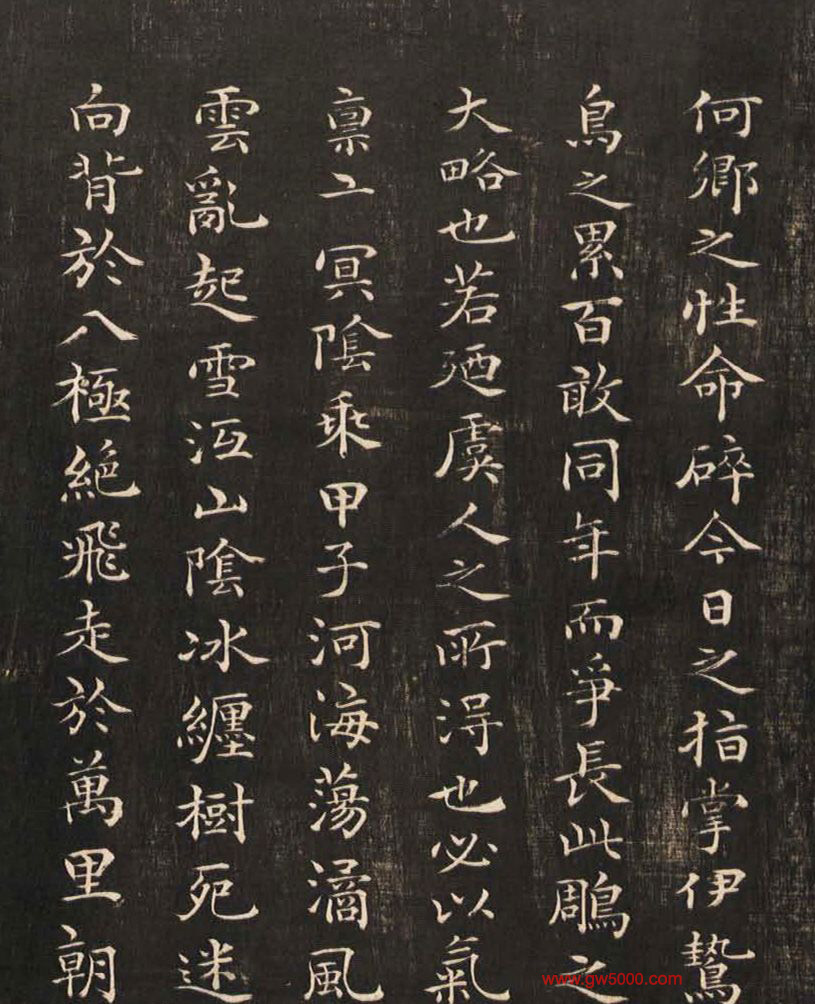 何鄉之性命碎今日之指掌伊鷙
鳥之累百敢同年而爭長此鵰之
大略也若廼虞人之所得也必以氣
禀二冥陰乘甲子河海蕩潏風
雲亂起雪沍山陰冰纏樹死迷
向背於八極絕飛走於萬里朝
www.gw5000.com